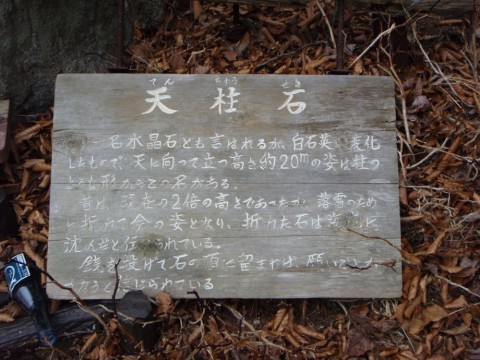 てん ちゅう せき
天柱石
一名水晶石とも言はれるが、白石英の変化
したもので、天に向って立つ高さ約20mの姿は柱の
形からこの名がある。
昔は、現在の2倍の高さであったが、落雪のため
に折れて今の姿となり、折れた石は
沈んだと伝えられている。
銭を投げて石の頂に留まれば、願いごとが
かなうと信じられている